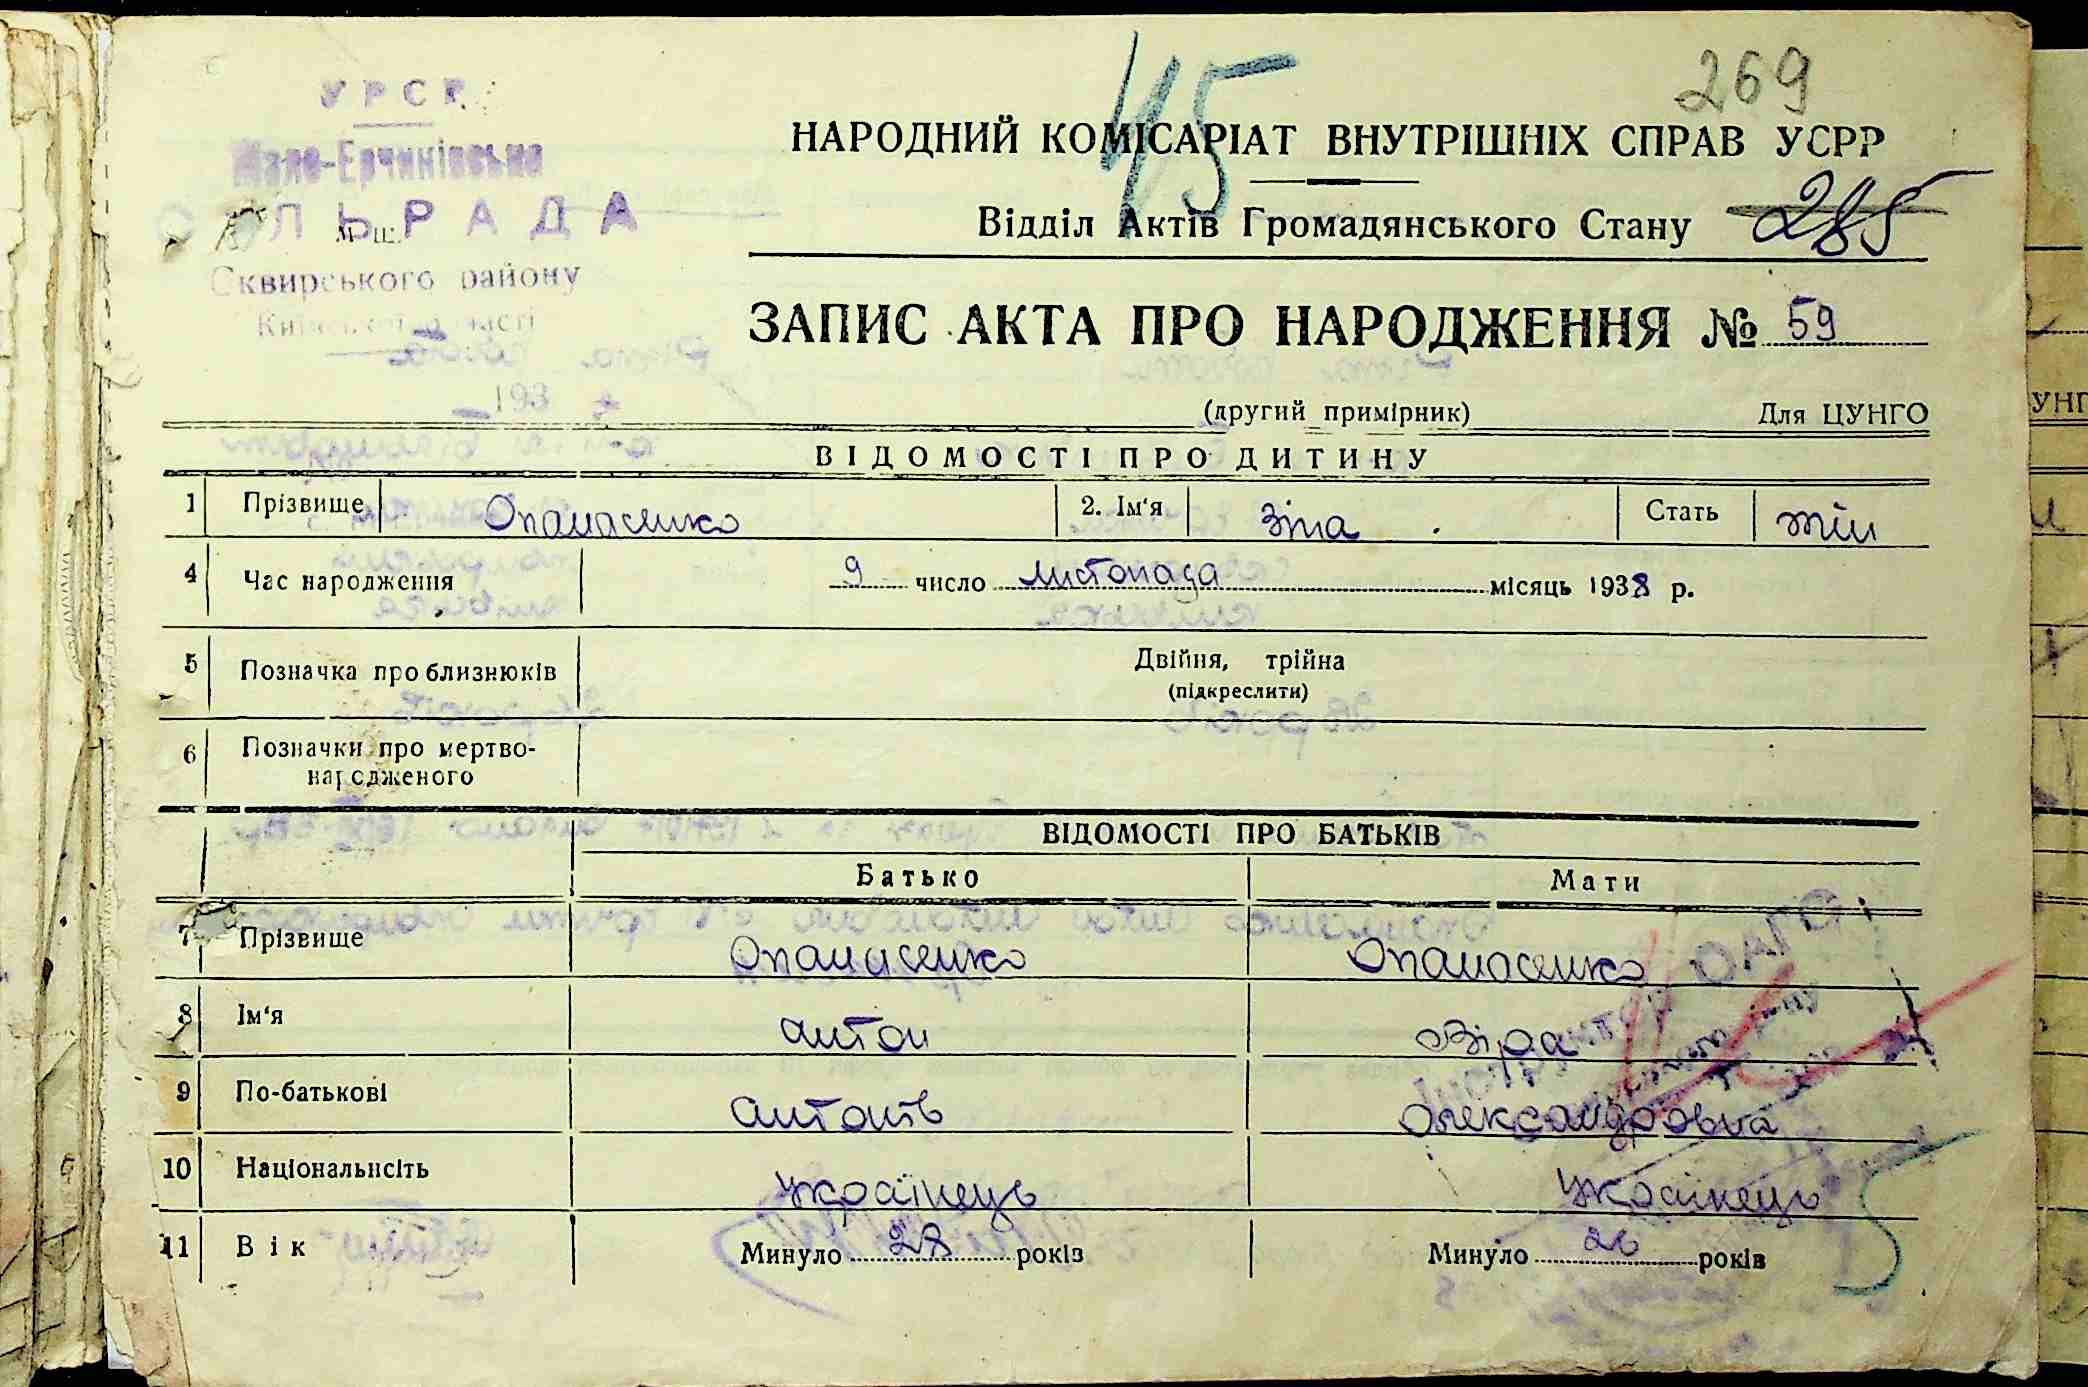 45
269
УРСР
Мало-Ерчиківська
СІЛЬРАДА
м. ш.
Сквирського району
Київської області
193
НАРОДНИЙ КОМІСАРІАТ ВНУТРІШНІХ СПРАВ УСРР
Відділ Актів Громадянського Стану 285
ЗАПИС АКТА ПРО НАРОДЖЕННЯ № 59
(другий примірник) Для ЦУНГО
ВІДОМОСТІ ПРО ДИТИНУ
1 Прізвище Опанасенко 2. Ім'я Зіна Стать жін
4 Час народження 9 число листопада місяць 1938 р.
5 Позначка про близнюків Двійня, трійна
(підкреслити)
6 Позначки про мертво-
народженого
ВІДОМОСТІ ПРО БАТЬКІВ
Батько Мати
7 Прізвище Опанасенко Опанасенко
8 Ім'я Антон Віра
9 По-батькові Антонів Олександровна
10 Національнсіть Українець Українець
11 Вік Минуло 28 років Минуло 26 років
Інспектор ОАГС